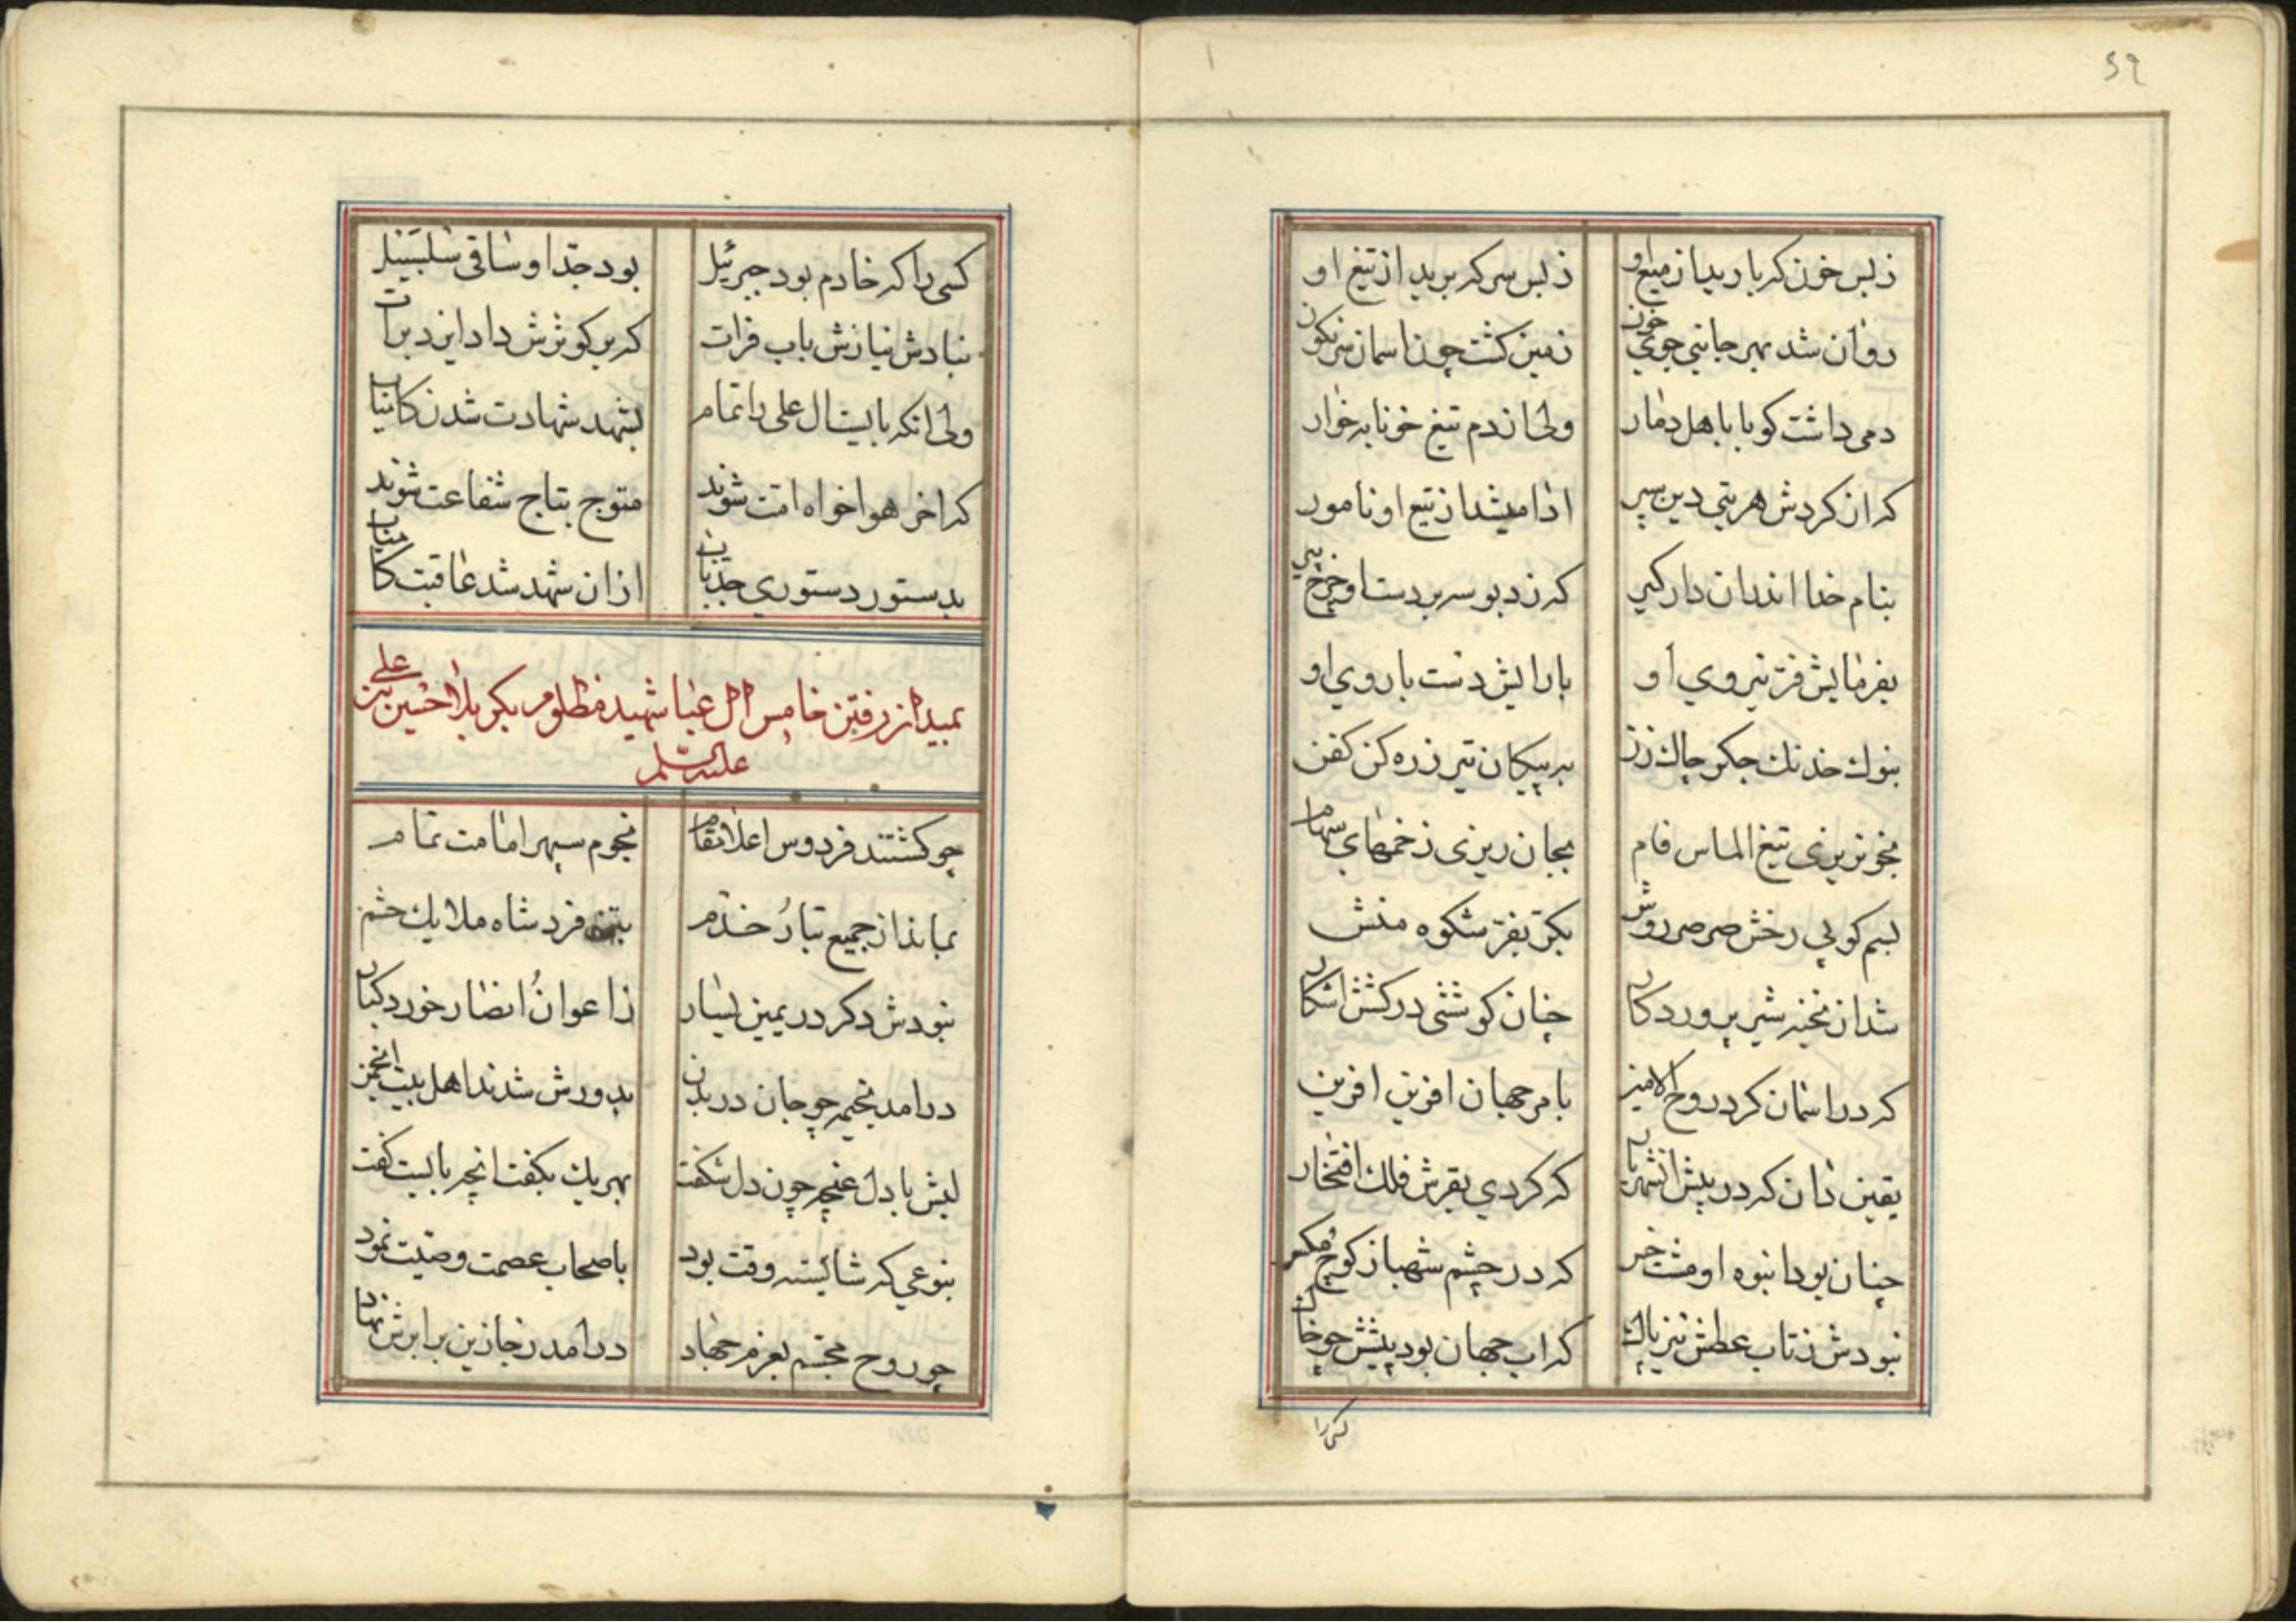 ۵۹
زبس خون که بارید از میغ او زبس سر که برید از تیغ او
روان شد بهر جانبی جوی خون زمین کشت چون اسمان سرنکون
دمی داشت کویا باهل دمار ولی از دم تیغ خونابه خوار
که ان کردش هر بتی دین سپر ادا میشد از تیع او نامور
بنام خدا اندران دار کیر که زد بوسه بر دست او چرخ پیر
بفرمایش فر نیروی او بارایش دست باروی او
بنوك خدنك جکر چاك زن به پیکان تیر زره کن کفن
بخونریزی تیغ الماس فام بجان ریزی زخمهای سهام
بسم کوبی رخش صرصر روش بکر بفر شکوه منش
شد از نخیز شیر پروردکار چنان کوششی در کشش اشکار
که در اسمان کرد روح الامین بامر جهان افرین افرین
یقین دان که در پیش انشهریار که کردی بقربش فلك افتخار
چنان بود انبوه او مشت خس که در چشم شهباز کوچ مکس
نبودش ز تاب عطش نیز باك که اب جهان بود پیشش چو خاك
کسی را
کسی را که خادم بود جبرئیل بود جد او ساقی سلسبیل
نبادش نیازش باب فرات که بر کوثرش داد ایزد برات
ولی انکه بایست ال علی را تمام بشهد شهادت شدن کامیاب
که اخر هواخواه امت شوند متوج بتاج شفاعت شوند
بدستور دستوری جد باب ازان شهد شد عاقبت کامیاب
بمیدان رفتن خامس ال عبا شهید مظلوم بکربلا حسین بن علی
علیه السلم
چو کشتند فردوس اعلا مقام نجوم سپهر امامت تمام
بماند از جمیع تبار خدم بتن فرد شاه ملایك حشم
نبودش دکر در یمین یسار ز اعوان انصار خورد کبار
درامد بخیمه چو جان در بدن بدورش شدند اهل بیت انجمن
لبش با دل غنچه چون دل شکفت بهر یك بکفت انچه بایست کفت
بنوعی که شایسته وقت بود باصحاب عصمت وصیت نمود
چو روح مجسم بعزم جهاد درامد ز جا زین برابرش نهاد